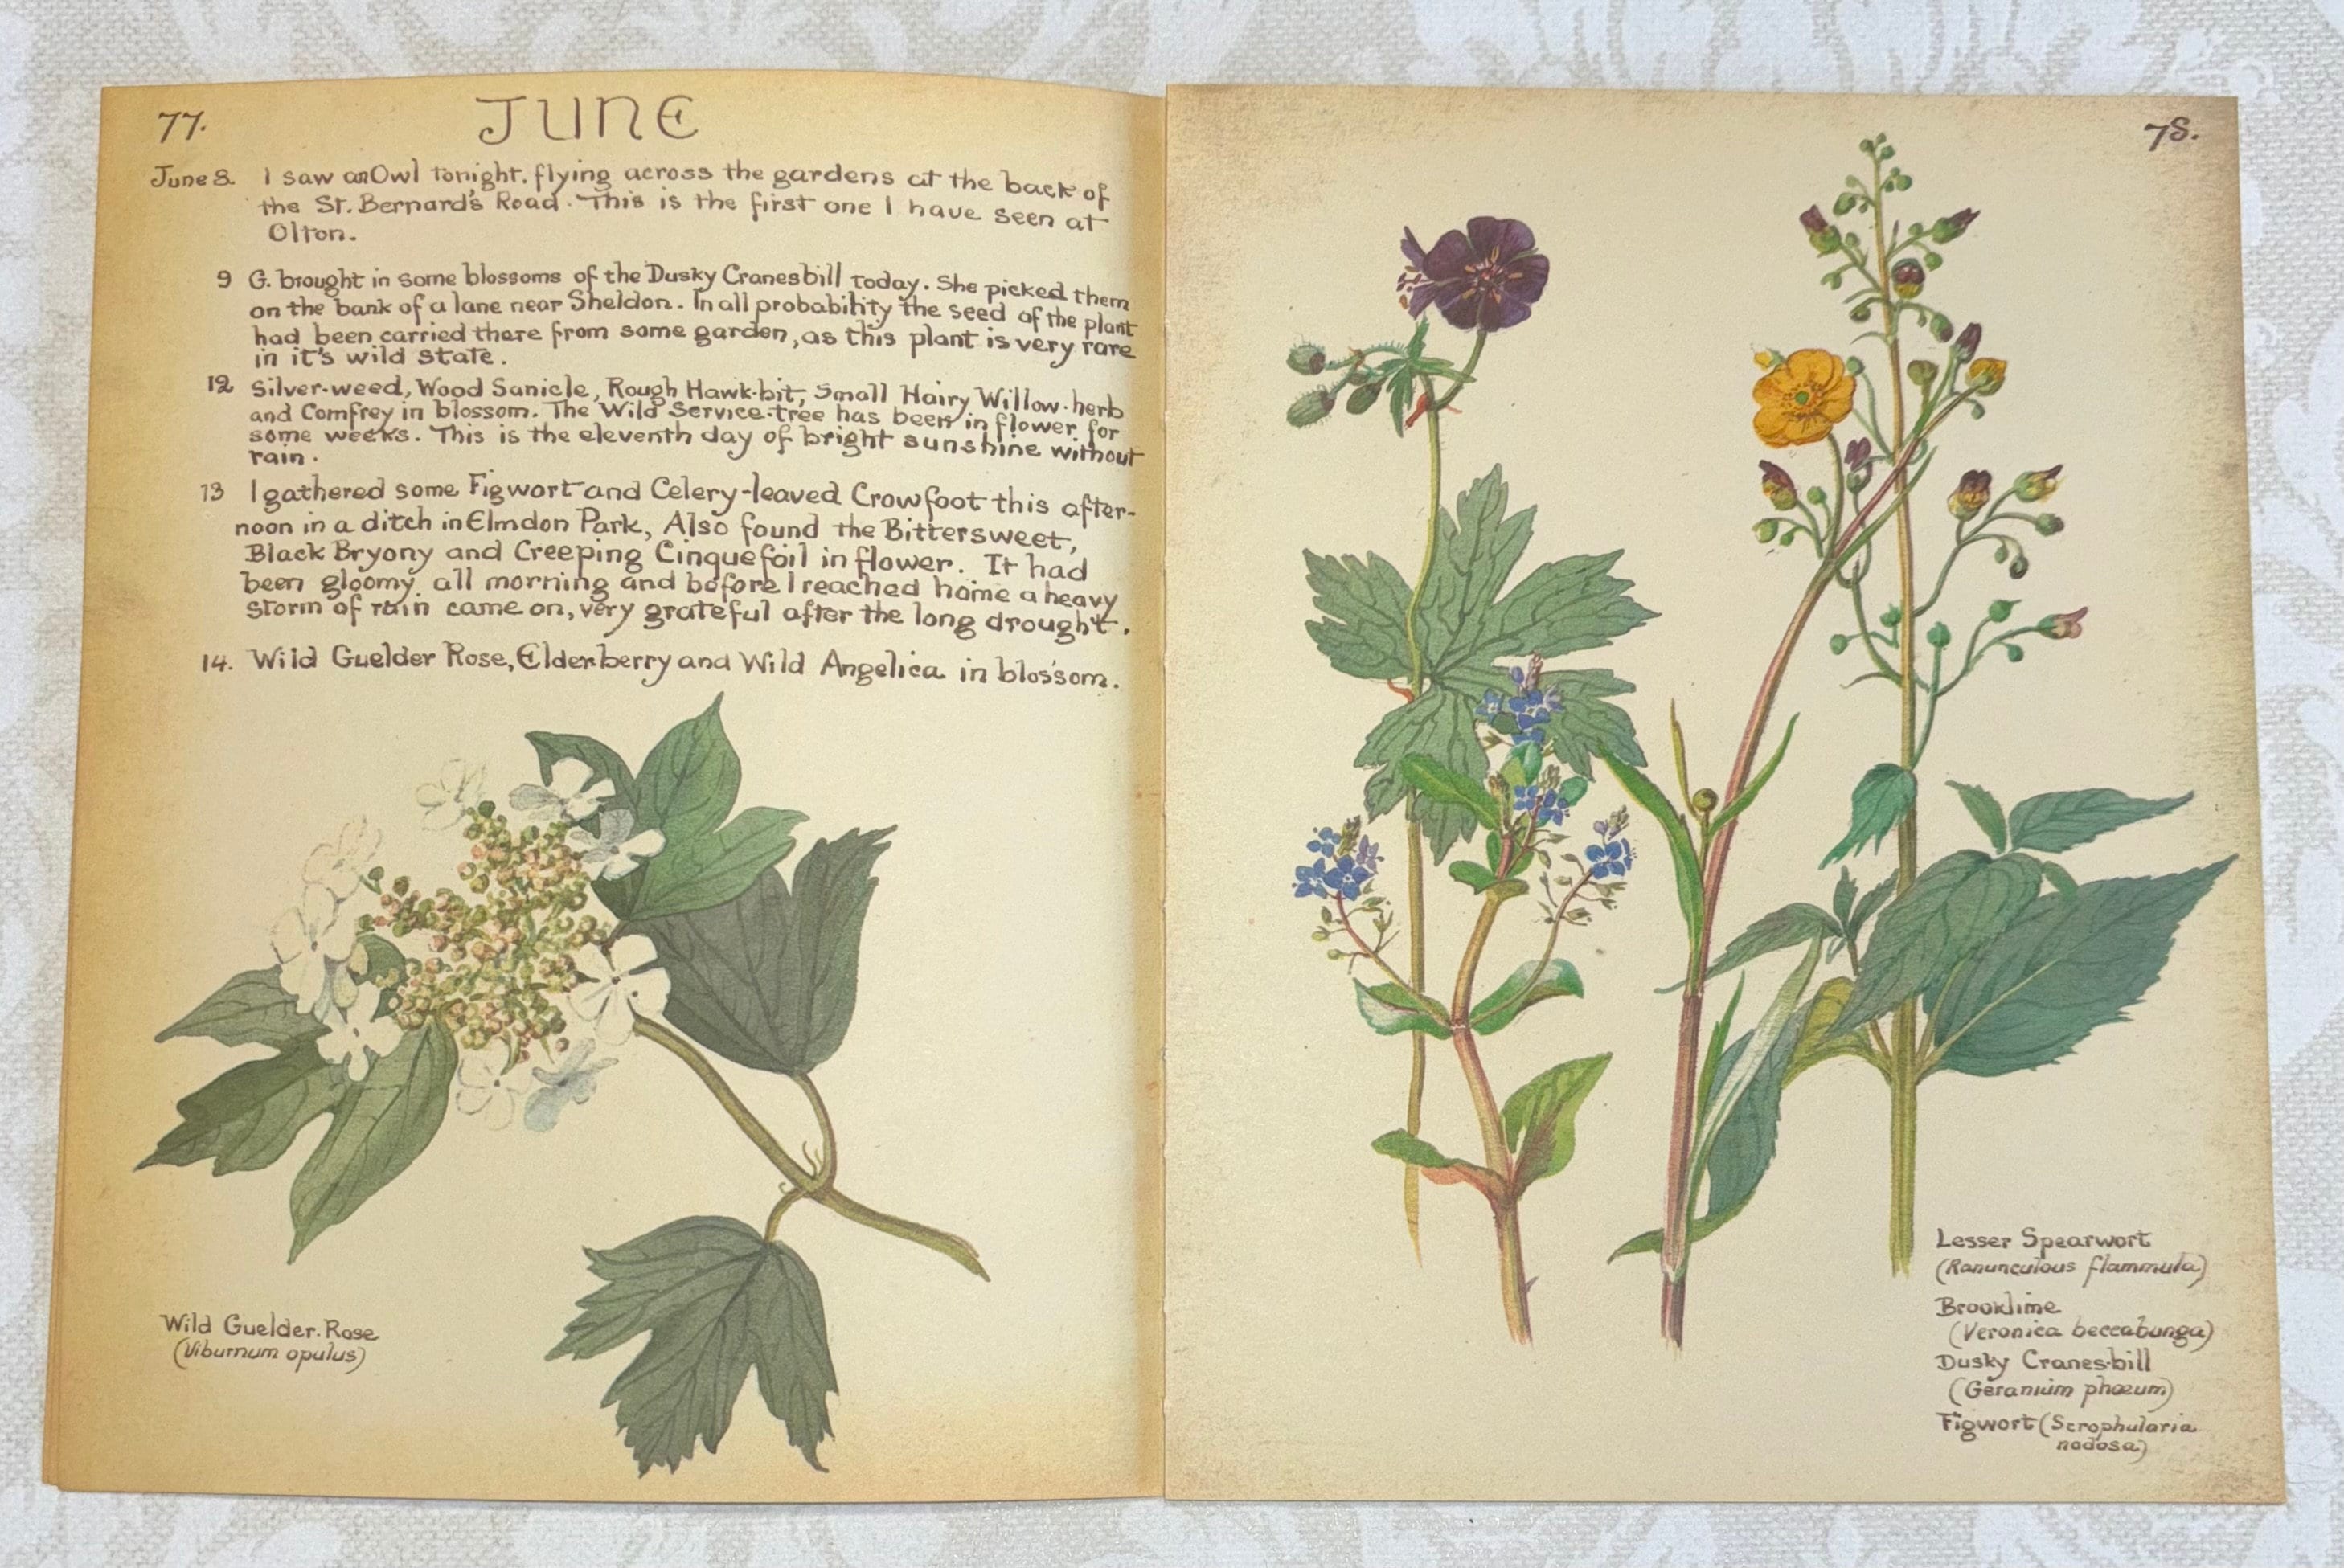 77.
JUNE
June 8. I saw an Owl tonight. flying across the gardens at the back of
the St. Bernard's Road. This is the first one I have seen at
Olton.
9 G. brought in some blossoms of the Dusky Cranesbill today. She picked them
on the bank of a lane near Sheldon. In all probability the seed of the plant
had been carried there from some garden, as this plant is very rare
in it's wild state.
12 Silver-weed, Wood Sanicle, Rough Hawk-bit, Small Hairy Willow-herb
and Comfrey in blossom. The Wild Service-tree has been in flower for
some weeks. This is the eleventh day of bright sunshine without
rain.
13 I gathered some Figwort and Celery-leaved Crowfoot this after-
noon in a ditch in Elmdon Park, Also found the Bittersweet,
Black Bryony and Creeping Cinquefoil in flower. It had
been gloomy all morning and before I reached home a heavy
storm of rain came on, very grateful after the long drought.
14. Wild Guelder Rose, Elderberry and Wild Angelica in blossom.
Wild Guelder-Rose
(Viburnum opulus)
78.
Lesser Spearwort
(Ranunculous flammula)
Brooklime
(Veronica beccabunga)
Dusky Cranes-bill
(Geranium phœum)
Figwort (Scrophularia
nodosa)